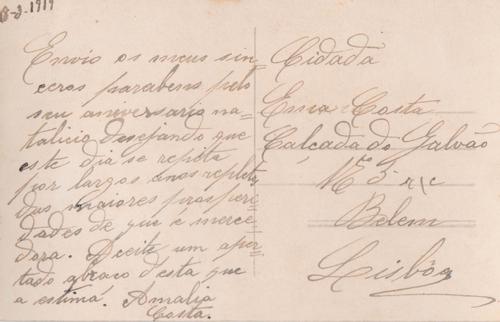 8-3.1919
Envio os meus sin=
ceros parabens pelo
seu aniversario na=
talicio, desejando que
este dia se repita
por largos anos repleta
das maiores prosperi=
dades de que é merce=
dora. Aceite um aper=
tado abraço d'esta que
a estima. Amalia
Costa.
Cidada
Ema Costa
Calçada do Galvão
Nº 5 r/c
Belem
Lisbôa